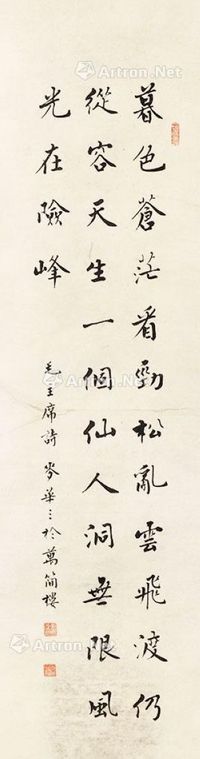 暮色蒼茫看勁松亂雲飛渡仍
從容天生一個仙人洞無限風
光在險峰
毛主席詩 岑華〻於萬簡樓
Artron.Net
Artron.Net
Artron.Net
Artron.Net